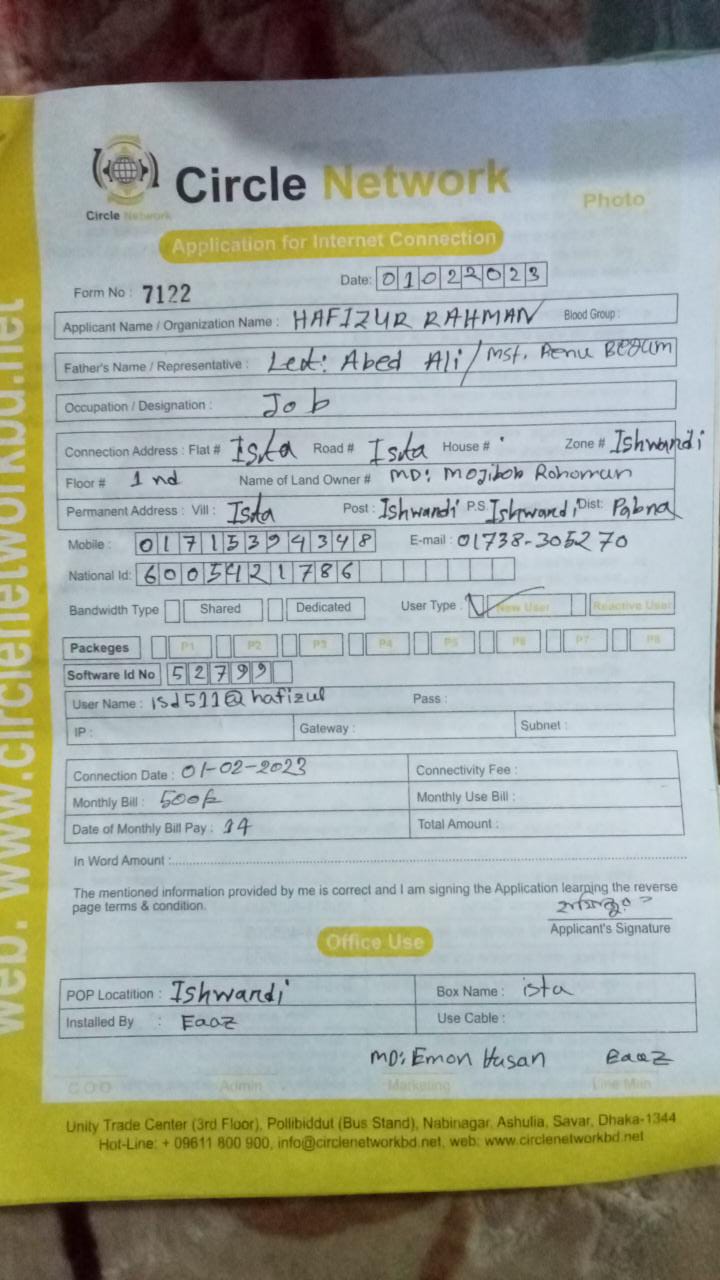 Circle Network
Circle Network
Photo
Application for Internet Connection
Form No : 7122
Date: 01022023
Applicant Name / Organization Name : HAFIZUR RAHMAN Blood Group :
Father's Name / Representative : Led: Abed Ali / Mst. Renu BEGUM
Occupation / Designation : Job
Connection Address : Flat # Ista Road # Ista House # Zone # Ishwardi
Floor # 1 nd Name of Land Owner # MD: Mojibob Rohoman
Permanent Address : Vill : Ista Post : Ishwardi P.S. Ishwardi Dist: Pabna
Mobile : 01715394348 E-mail : 01738-305270
National Id: 6005421786
Bandwidth Type Shared Dedicated User Type : New User Reactive User
Packeges P1 P2 P3 P4 P5 P6 P7 P8
Software Id No 52799
User Name : isd511@hafizul Pass :
IP : Gateway : Subnet :
Connection Date : 01-02-2023 Connectivity Fee :
Monthly Bill : 500/- Monthly Use Bill :
Date of Monthly Bill Pay : 14 Total Amount :
In Word Amount :
The mentioned information provided by me is correct and I am signing the Application learning the reverse
page terms & condition.
Applicant's Signature
Office Use
POP Locatition : Ishwardi Box Name : ista
Installed By : Eaaz Use Cable :
MD: Emon Hasan Eaaz
COO Admin Marketing Line Man
Unity Trade Center (3rd Floor), Pollibiddut (Bus Stand), Nabinagar, Ashulia, Savar, Dhaka-1344
Hot-Line: + 09611 800 900, info@circlenetworkbd.net, web: www.circlenetworkbd.net
web: www.circlenetworkbd.net